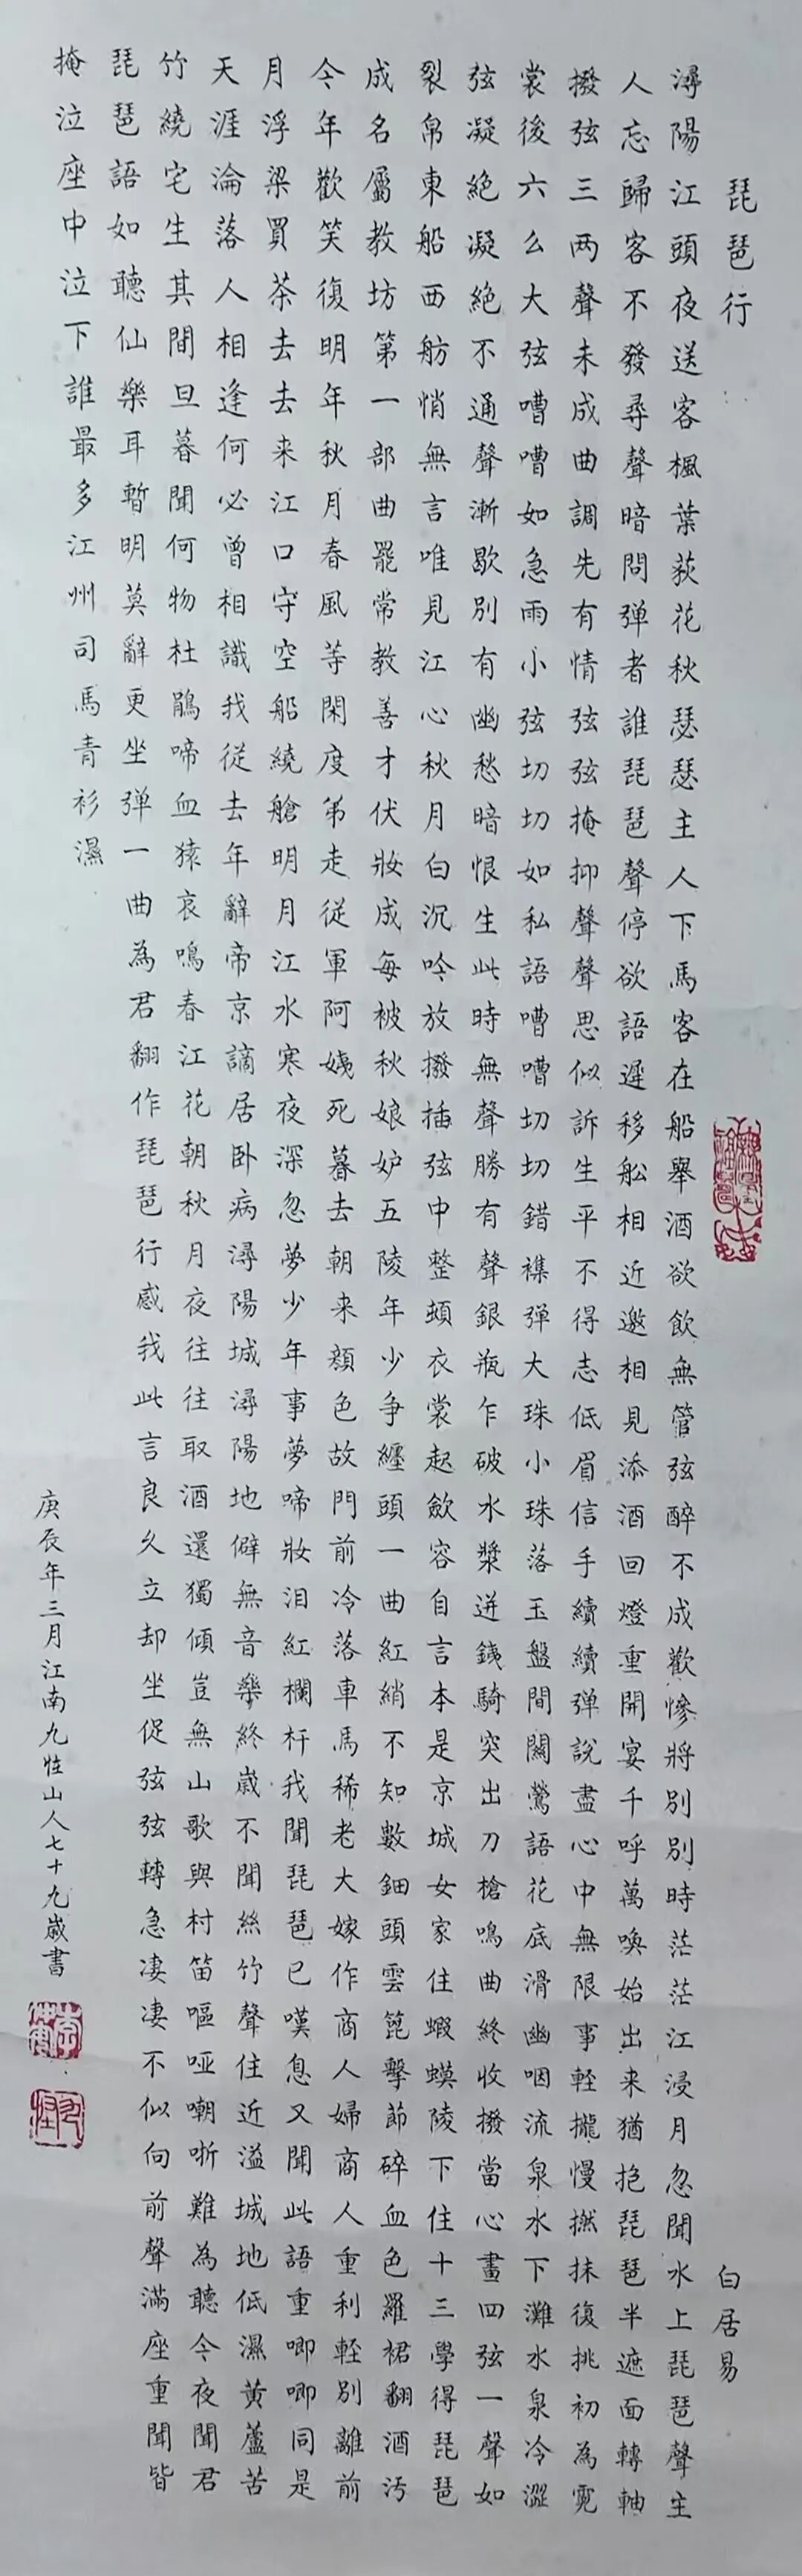 琵琶行
白居易
潯陽江頭夜送客楓葉荻花秋瑟瑟主人下馬客在船舉酒欲飲無管弦醉不成歡慘將別別時茫茫江浸月忽聞水上琵琶聲主
人忘歸客不發尋聲暗問弹者誰琵琶聲停欲語遲移舩相近邀相見添酒回燈重開宴千呼萬喚始出来猶抱琵琶半遮面轉軸
撥弦三两聲未成曲調先有情弦弦掩抑聲聲思似訴生平不得志低眉信手續續弹說盡心中無限事輕攏慢撚抹復挑初為霓
裳後六么大弦嘈嘈如急雨小弦切切如私語嘈嘈切切錯襍弹大珠小珠落玉盤間關鶯語花底滑幽咽流泉水下灘水泉冷澀
弦凝絕凝絕不通聲漸歇別有幽愁暗恨生此時無聲勝有聲銀瓶乍破水漿迸銕騎突出刀槍鳴曲終收撥當心畫四弦一聲如
裂帛東船西舫悄無言唯見江心秋月白沉吟放撥插弦中整頓衣裳起斂容自言本是京城女家住蝦蟆陵下住十三學得琵琶
成名屬教坊第一部曲罷常教善才伏妝成每被秋娘妒五陵年少争纏頭一曲紅綃不知數鈿頭雲篦擊節碎血色羅裙翻酒汚
今年歡笑復明年秋月春風等閑度弟走從軍阿姨死暮去朝来顏色故門前冷落車馬稀老大嫁作商人婦商人重利輕別離前
月浮梁買茶去去来江口守空船繞艙明月江水寒夜深忽夢少年事夢啼妝泪紅欄杆我聞琵琶已嘆息又聞此語重唧唧同是
天涯淪落人相逢何必曾相識我從去年辭帝京謫居卧病潯陽城潯陽地僻無音樂終歲不聞絲竹聲住近湓城地低濕黄蘆苦
竹繞宅生其間旦暮聞何物杜鵑啼血猿哀鳴春江花朝秋月夜往往取酒還獨傾豈無山歌與村笛嘔哑嘲哳難為聽今夜聞君
琵琶語如聽仙樂耳暫明莫辭更坐弹一曲為君翻作琵琶行感我此言良久立却坐促弦弦轉急凄凄不似向前聲滿座重聞皆
掩泣座中泣下誰最多江州司馬青衫濕
庚辰年三月江南九怪山人七十九歲書